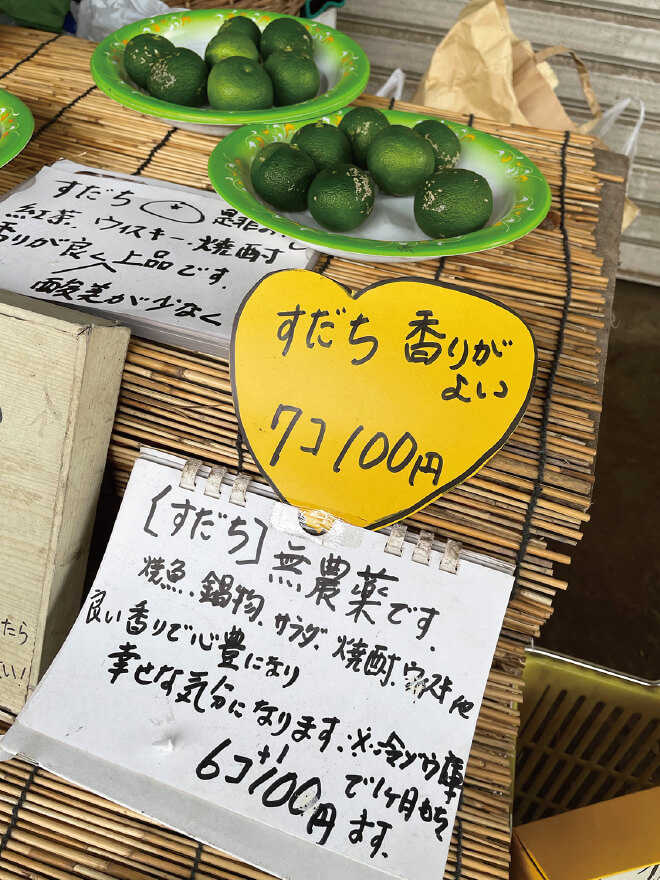 すだち
紅茶、ウィスキー、焼酎
香りが良く上品です。
酸美が少なく
すだち 香りが
よい
7コ100円
[すだち]無農薬です。
焼魚、鍋物、サラダ、焼酎、ウィスキー他
良い香りで心豊になり
幸せな気分になります。※冷ゾウ庫
で1ヶ月もち
ます。
6コ+1 100円
たら
い!